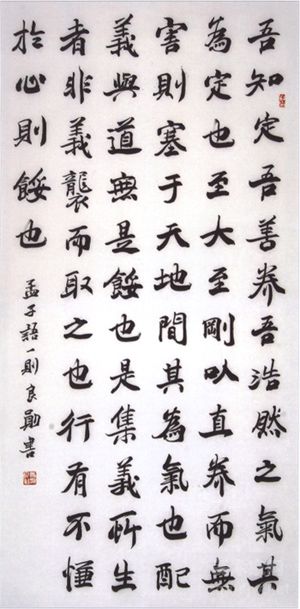 吾知定吾善养吾浩然之氣其
為定也至大至剛以直养而無
害則塞于天地間其為氣也配
義與道無是餒也是集義所生
者非義襲而取之也行有不慊
於心則餒也
孟子語一則良勛書